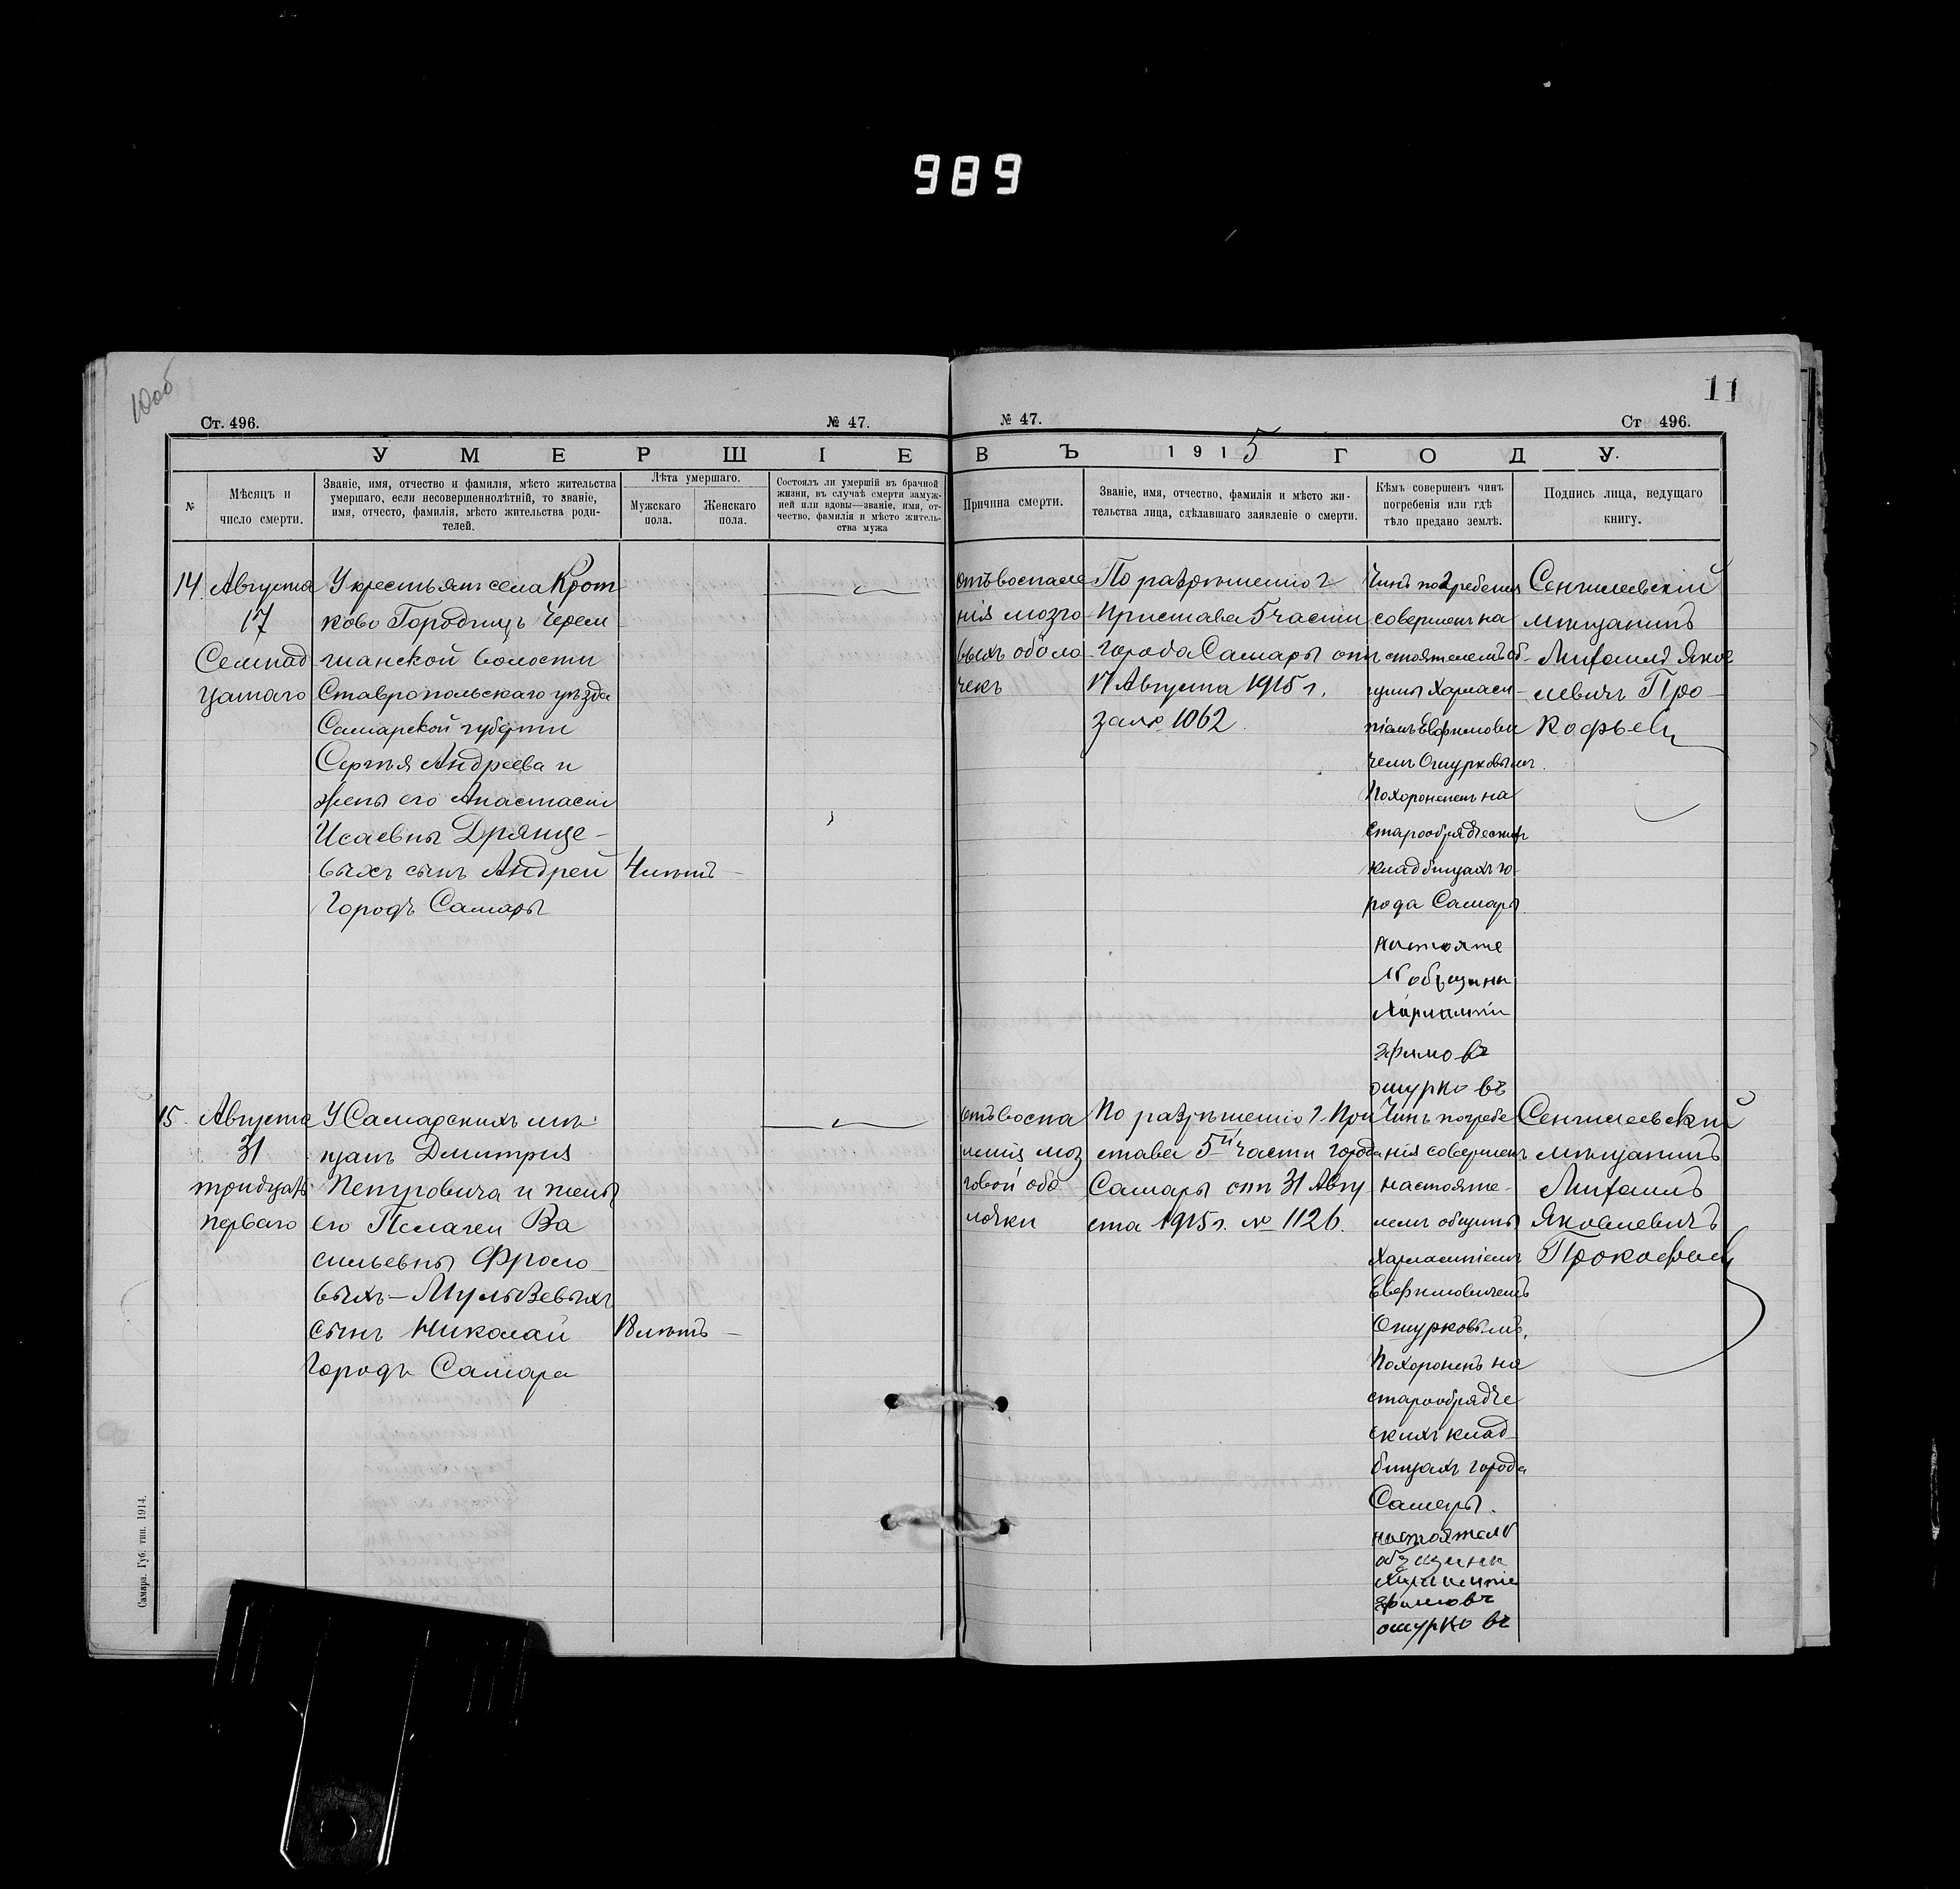 989
10об
11
Ст. 496.
№ 47.
№ 47.
Ст 496.
УМЕРШІЕ
ВЪ 1915 ГОДУ.
№
Мѣсяцъ и
число смерти.
Званіе, имя, отчество и фамилія, мѣсто жительства
умершаго, если несовершеннолѣтній, то званіе,
имя, отчесто, фамилія, мѣсто жительства роди-
телей.
Лѣта умершаго.
Мужскаго
пола.
Женскаго
пола.
Состоялъ ли умершій въ брачной
жизни, въ случаѣ смерти замуж-
ней или вдовы—званіе, имя, от-
чество, фамилія и мѣсто житель-
ства мужа
Причина смерти.
Званіе, имя, отчество, фамилія и мѣсто жи-
тельства лица, сдѣлавшаго заявленіе о смерти.
Кѣмъ совершенъ чинъ
погребенія или гдѣ
тѣло предано землѣ.
Подпись лица, ведущаго
книгу.
14
Августа
17
Семнад
цатаго
У крестьянъ села Крот
ково Городищъ Черем
шанской волости
Ставропольскаго уѣзда
Самарской губерніи
Сергѣя Андреева и
жены его Анастасіи
Исаевны Дрянце-
выхъ сынъ Андрей
Городъ Самары
4 лѣтъ
отъ воспале
нія мозго
выхъ оболо
чекъ
По разрѣшенію г
Пристава 5 части
города Самары отъ
17 Августа 1915 г.
за № 1062.
Чинъ погребенія
совершенъ на
стоятелемъ об-
щины Харлам-
піемъ Евфимови
чемъ Ошурковымъ.
Похороненъ на
старообрядческихъ
кладбищахъ го-
рода Самары.
настояте
ль общины
Харлампій
Эфимовъ
ошурковъ
Сенгилеевскій
мѣщанинъ
Михаилъ Яков
левичъ Про-
кофьевъ
15.
Августа
31
тридцать
перваго
У Самарскихъ мѣ-
щанъ Дмитрия
Петровича и жены
его Пелагеи Ва
сильевны Фроло-
выхъ—Мульвевыхъ
сынъ Николай
Городъ Самара
18 лѣтъ
отъ воспа
ленія моз
говой обо
лочки
По разрѣшенію г. При
става 5й части города
Самары отъ 31 Авгу
ста 1915 г. № 1126.
Чинъ погребе
нія совершенъ
настояте-
лемъ общины
Харлампіемъ
Евфимовичемъ
Ошурковымъ.
Похороненъ на
старообрядче
скихъ клад-
бищахъ города
Самары.
настоятель
общины
Харлампій
Эфимовъ
ошурковъ
Сенгилеевскій
мѣщанинъ
Михаилъ
Яковлевичъ
Прокофьевъ
Самара. Губ. тип. 1914.